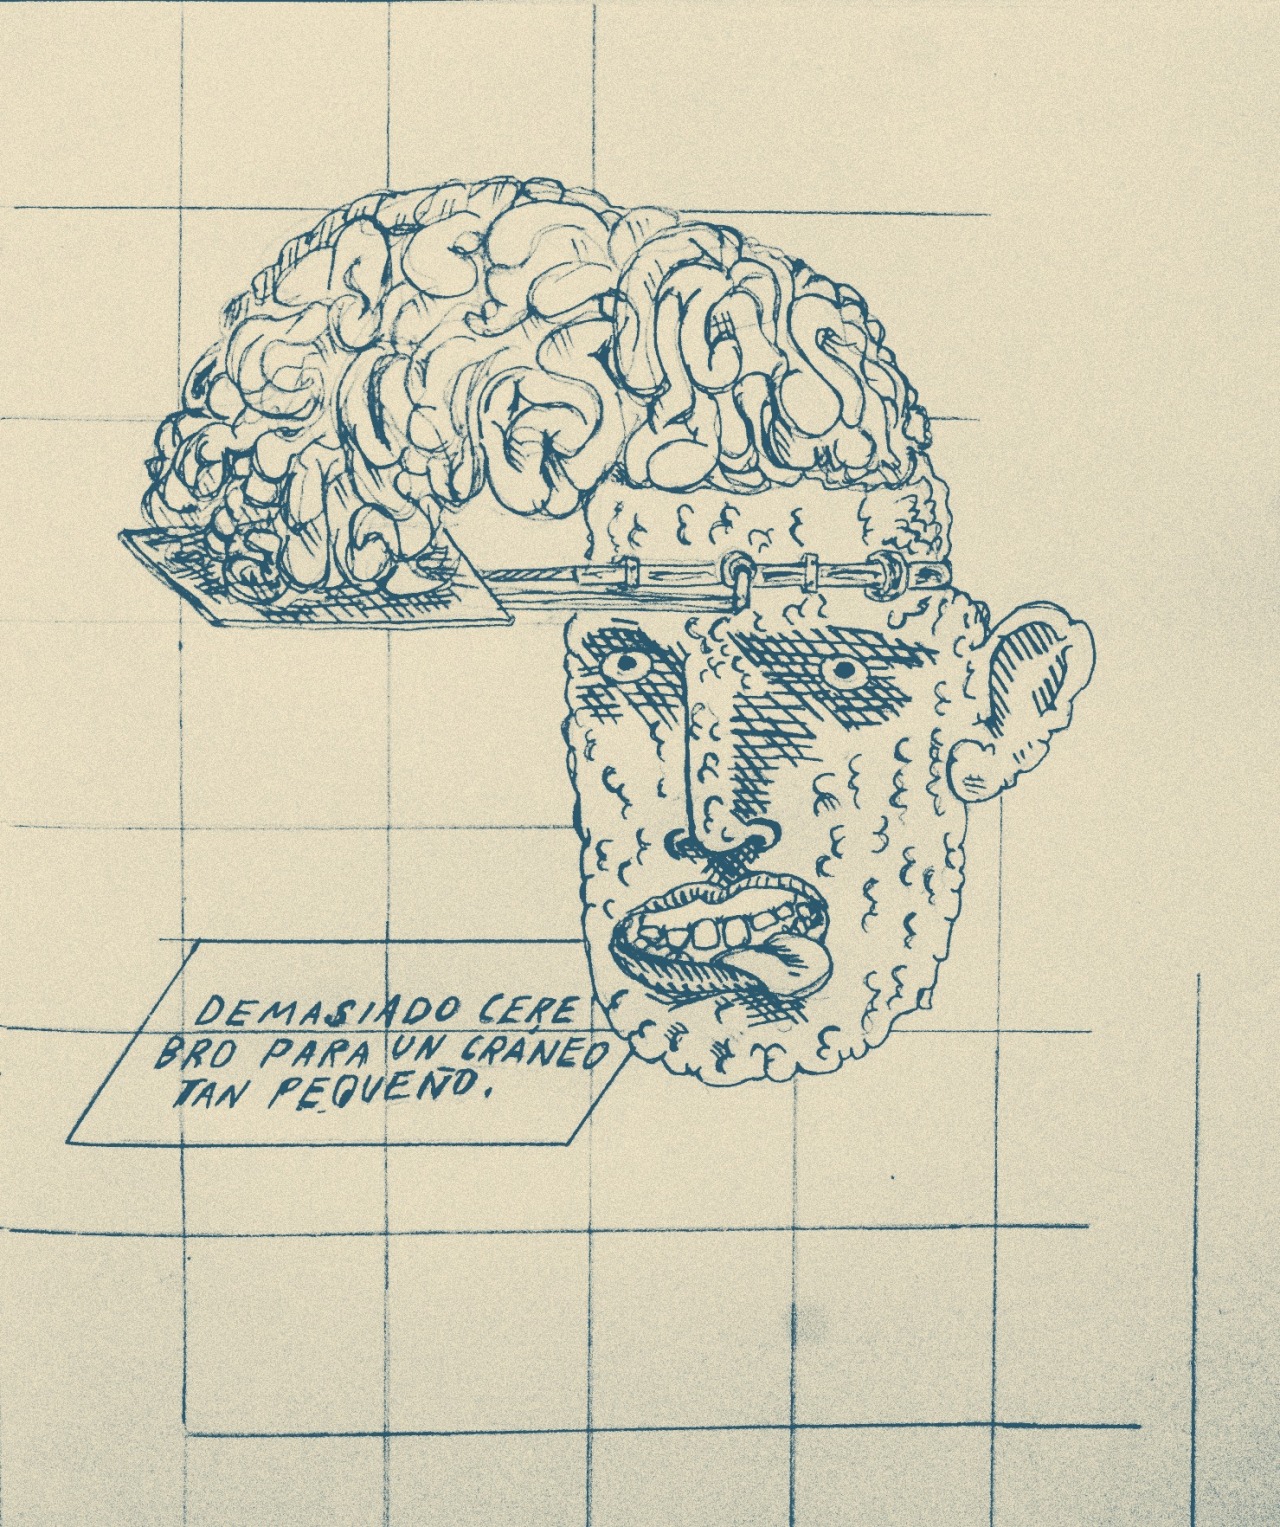 DEMASIADO CERE
BRO PARA UN CRÁNEO
TAN PEQUEÑO.